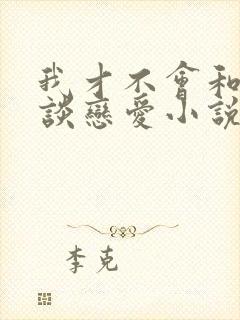 我才不會和
談戀愛小說
李克